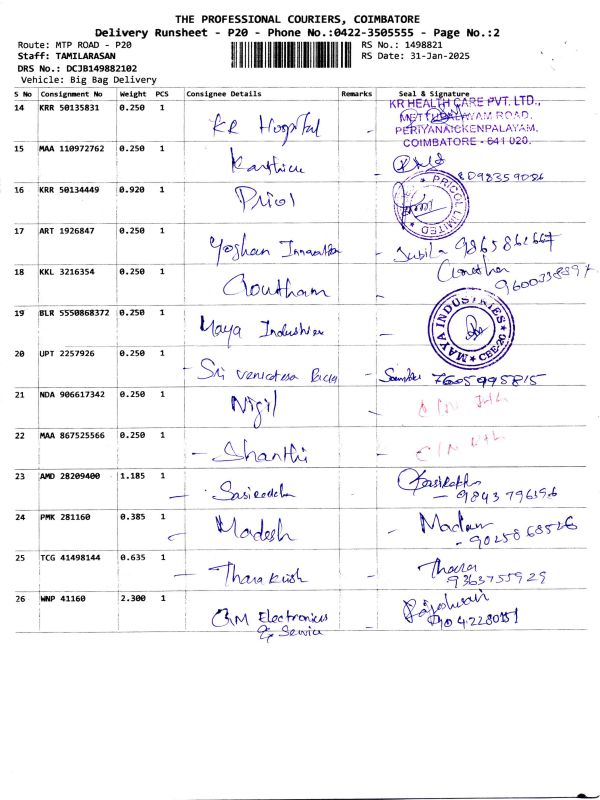 THE PROFESSIONAL COURIERS, COIMBATORE
Delivery Runsheet - P20 - Phone No.:0422-3505555 - Page No.:2
Route: MTP ROAD - P20 RS No.: 1498821
Staff: TAMILARASAN RS Date: 31-Jan-2025
DRS No.: DCJB149882102
Vehicle: Big Bag Delivery
S No Consignment No Weight PCS Consignee Details Remarks Seal & Signature
14 KRR 50135831 0.250 1 KR Hospital
KR HEALTH CARE PVT. LTD.,
METTUPALAYAM ROAD,
PERIYANAICKENPALAYAM,
COIMBATORE - 641 020.
15 MAA 110972762 0.250 1 Karthick
8098359086
16 KRR 50134449 0.920 1 Pricol PRICOL LIMITED
17 ART 1926847 0.250 1 Yoghan Innovation
18 KKL 3216354 0.250 1 Goutham Goutham
9600338897
19 BLR 5550868372 0.250 1 Maya Industries MAYA INDUSTRIES CBE-20
20 UPT 2257926 0.250 1 Sri 7605995815
21 NDA 906617342 0.250 1 Nigil
22 MAA 867525566 0.250 1 Shanthi
23 AMD 28209400 1.185 1
9843796196
24 PMK 281160 0.385 1 Madesh
9025868526
25 TCG 41498144 0.635 1 Thara Thara
9363755929
26 WNP 41160 2.300 1 Electronics
& Service